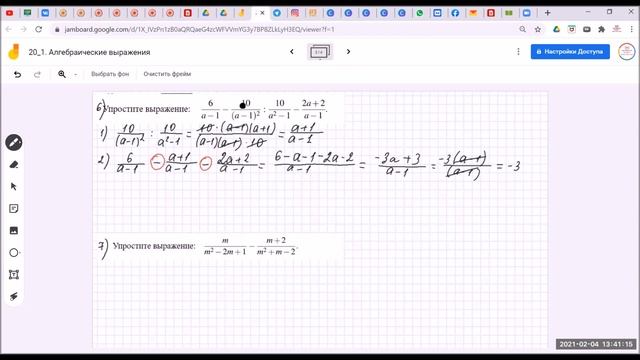 jamboard.google.com/d/1X_IVzPn1z80aQRQaeG4zcWFVVmYG3y7BP8ZLkLyH3EQ/viewer?f=1
20_1. Алгебраические выражения
Настройки Доступа
Выбрать фон Очистить фрейм
6) Упростите выражение: 6/(a−1) − 10/(a−1)² : 10/(a²−1) − (2a+2)/(a−1).
1) 10/(a−1)² : 10/(a²−1) = 10·(a−1)(a+1)/((a−1)(a−1)·10) = (a+1)/(a−1)
2) 6/(a−1) − (a+1)/(a−1) − (2a+2)/(a−1) = (6−a−1−2a−2)/(a−1) = (−3a+3)/(a−1) = −3(a−1)/(a−1) = −3
7) Упростите выражение: m/(m²−2m+1) − (m+2)/(m²+m−2).
2021-02-04 13:41:15